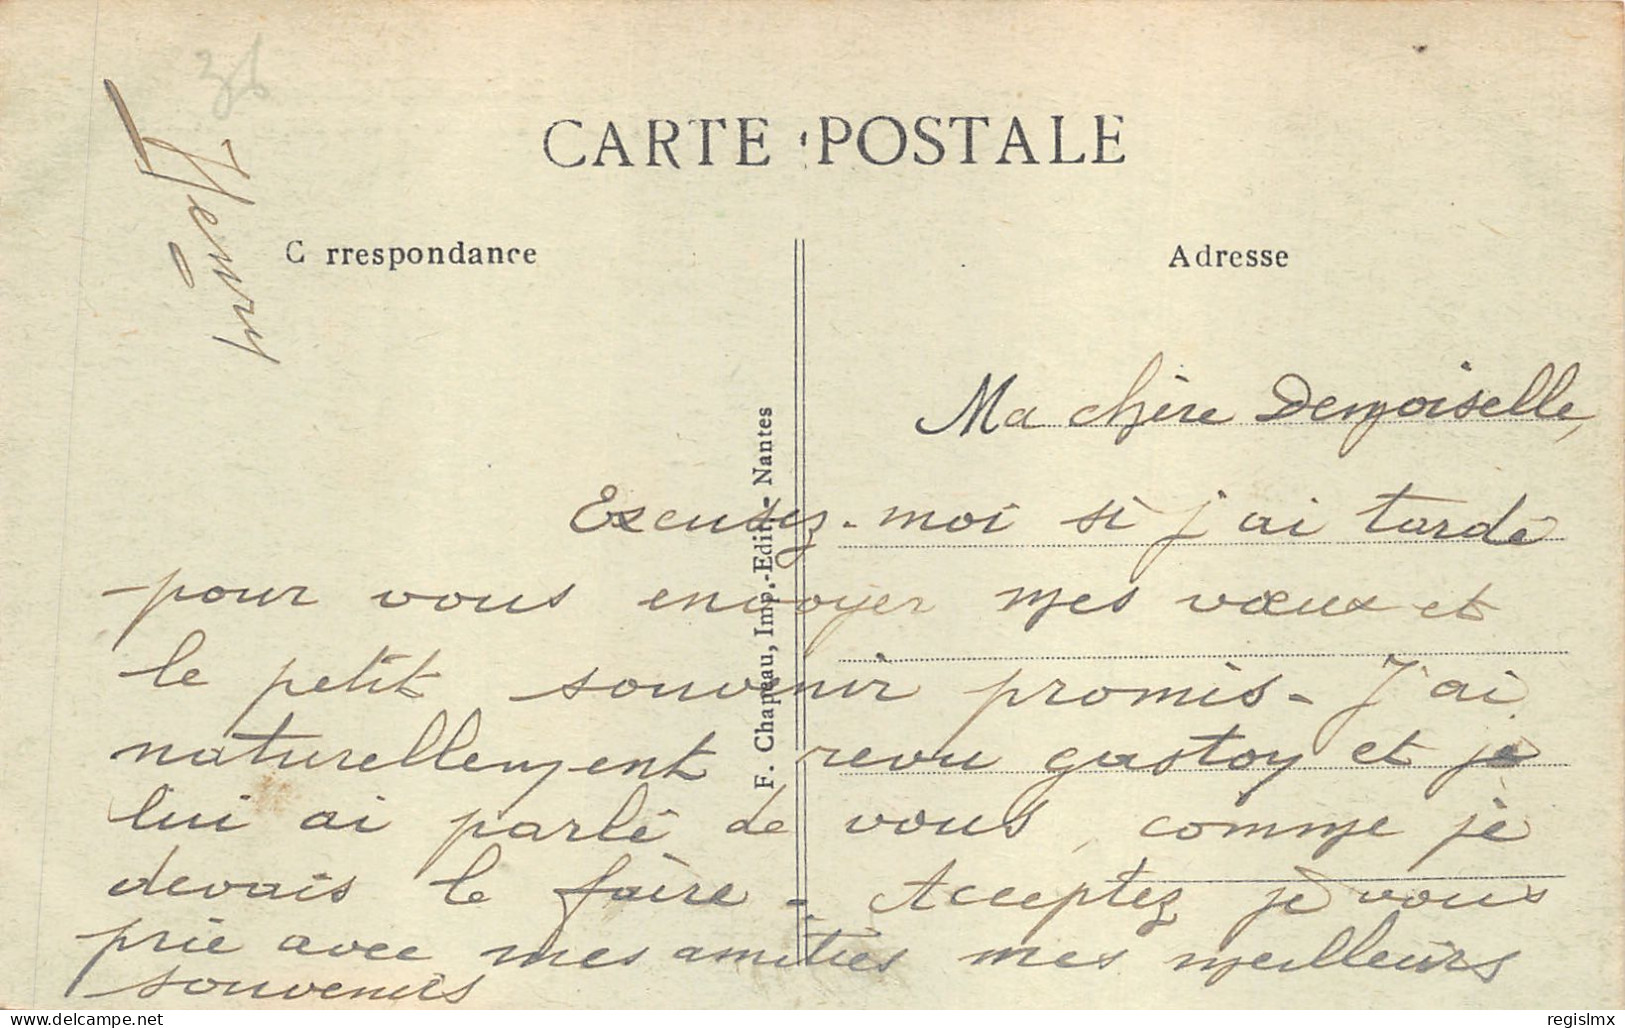 36
CARTE POSTALE
C rrespondance
Adresse
F. Chapeau, Imp.-Edit.- Nantes
Ma chère Demoiselle,
Excusez-moi si j'ai tardé
pour vous envoyer mes vœux et
le petit souvenir promis - J'ai
naturellement revu gastoy et je
lui ai parlé de vous, comme je
devais le faire -. Acceptez je vous
prie avec mes amitiés mes meilleurs
souvenirs
Henry
delcampe.net
regislmx